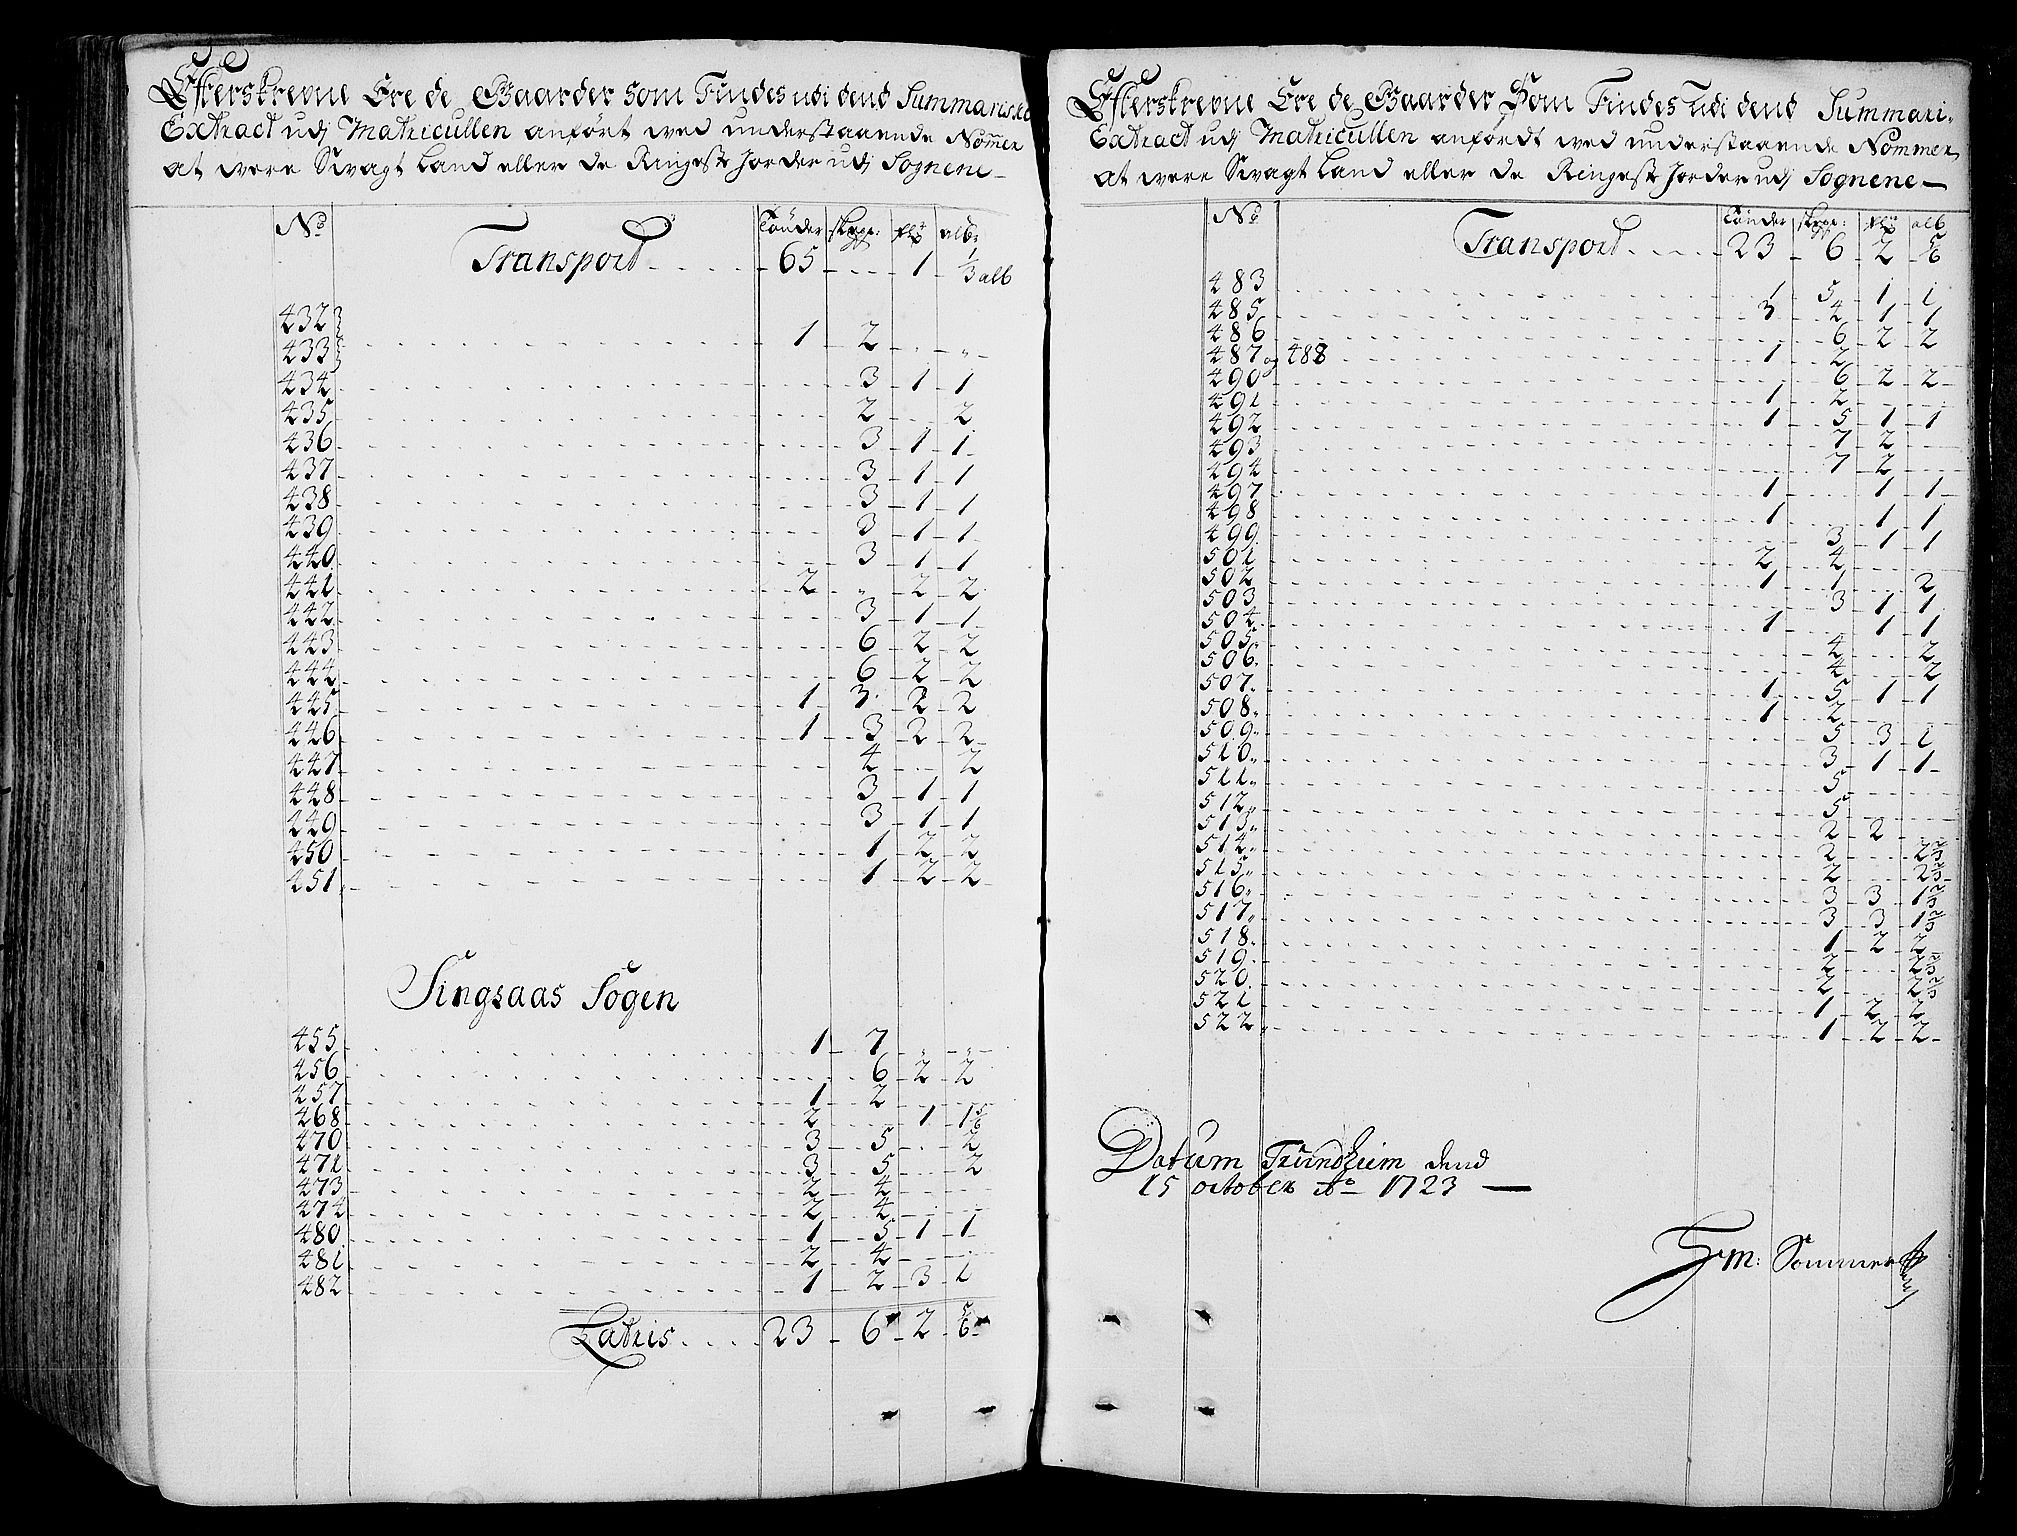 Efterskrevne Ere de Gaarder som Findes udi dend Summariske
Extract udj Matricullen anført wed understaaende Nommer
at were Swagt Land eller de Ringeste Jorder udj Sognene
No Tønder skpr: flø alb:
Transport 65 1 1/3 alb
432
433 1 2
434 3 1 1
435 2 2
436 3 1 1
437 3 1 1
438 3 1 1
439 3 1 1
440 3 1 1
441 2 2 2
442 3 1 1
443 6 2 2
444 6 2 2
445 1 3 2 2
446 1 3 2 2
447 4 2
448 3 1 1
449 3 1 1
450 1 2 2
451 1 2 2
Singsaas Sogen
455 1 7
456 6 2 2
457 1 2
468 2 1 1 5/6
470 3 5 2
471 3 5 2
473 2 4
474 2 4
480 1 5 1 1
481 2 4
482 1 2 3 1
Latris 23 6 2 5/6
Efterskrevne Ere de Gaarder Som Findes Udi dend Summari-
Extract udj Matricullen anfördt wed understaaende Nommer
at were Swagt Land eller de Ringeste Jorder udj Sognene
No Tønder skpr: flø alb
Transport 23 6 2 5/6
483 1 5 1 1
485 3 4 1 1
486 6 2 2
487 og 488 1 2
490 6 2 2
491 1 2
492 1 5 1 1
493 7 2
494 7 2
497 1 1 1
498 1 1 1
499 3 1 1
501 2 4
502 1 1 2
503 3 1 1
504 1 1 1
505 4 2
506 4 2
507 1 5 1 1
508 1 2
509 5 3 1
510 3 1 1
511 5
512 5
513 2 2
514 2 2 2/3
515 2 2 2/3
516 3 3 1 2/3
517 3 3 1 2/3
518 1 2 2
519 2 2 2/3
520 2 2 2/3
521 1 2 2
522 1 2 2
Datum Trundheim dend
15 october Ao 1723
Sommer